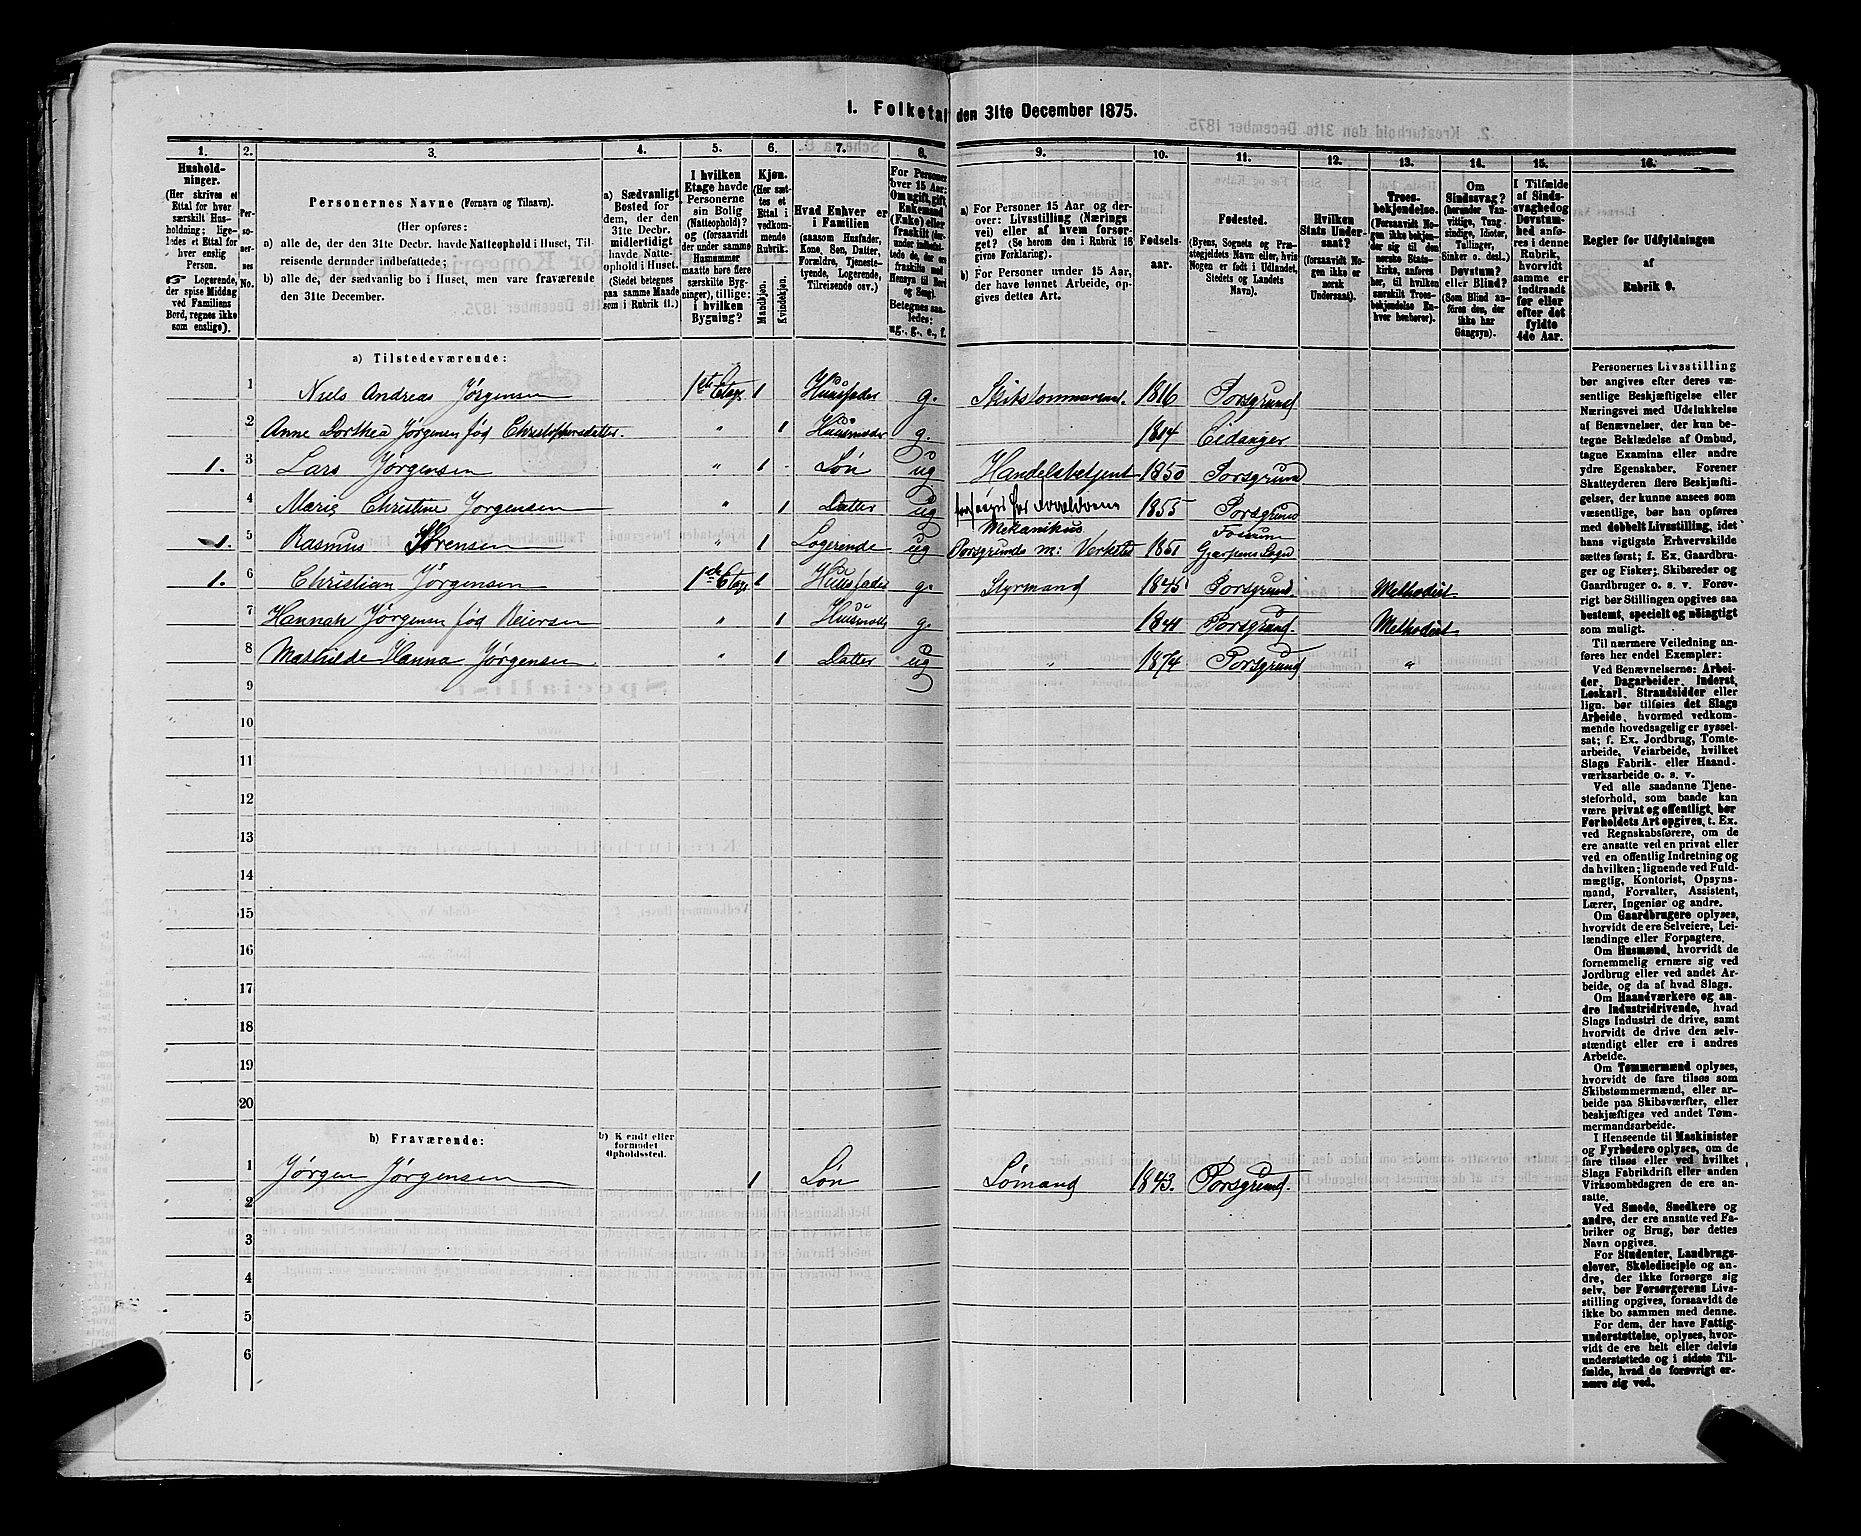 1. Folketal den 31te December 1875.
1. 2. 3. 4. 5. 6. 7. 8. 9. 10. 11. 12. 13. 14. 15. 16.
Hushold-
ninger.
(Her skrives et
Ettal for hver
særskilt Hus-
holdning; lige-
ledes et Ettal for
hver enslig
Person.
Logerende,
der spise Middag
ved Familiens
Bord, regnes ikke
som enslige).
Per-
so-
ner-
nes
No.
Personernes Navne (Fornavn og Tilnavn).
(Her opføres:
a) alle de, der den 31te Decbr. havde Natteophold i Huset, Til-
reisende derunder indbefattede;
b) alle de, der sædvanlig bo i Huset, men vare fraværende
den 31te December.
a) Sædvanligt
Bosted for
dem, der den
31te Decbr.
midlertidigt
havde Natte-
ophold i Huset.
(Stedet betegnes
paa samme Maade
som i Rubrik 11.)
I hvilken
Etage havde
Personerne
sin Bolig
(Natteophold)?
og (forsaavidt
der under samme
Husnummer
maatte høre flere
særskilte Byg-
ninger), tillige:
i hvilken
Bygning?
Kjøn.
(Her sæt-
tes et
Ettal i
vedkom-
mende
Rubrik.)
Mandkjøn.
Kvindekjøn.
Hvad Enhver er
i Familien
(saasom Husfader,
Kone, Søn, Datter,
Forældre, Tjeneste-
tyende, Logerende,
Tilreisende osv.)
For Personer
over 15 Aar:
Om ugift, gift,
Enkemand
(Enke) eller
fraskilt
under indbefat-
tede de, der ere
fraskilte med
Hensyn til Bord
og Seng).
Betegnes saa-
ledes:
ug., g., e., f.
a) For Personer 15 Aar og der-
over: Livsstilling (Nærings-
vei) eller af hvem forsør-
get? (Se herom den i Rubrik 16
givne Forklaring).
b) For Personer under 15 Aar,
der have lønnet Arbeide, op-
gives dettes Art.
Fødsels-
aar.
Fødested.
(Byens, Sognets og Præ-
stegjeldets Navn eller, hvis
Nogen er født i Udlandet,
Stedets og Landets
Navn).
Hvilken
Stats Under-
saat?
(forsaavidt No-
gen ikke er
norsk
Undersaat).
Troes-
bekjendelse.
(Forsaavidt No-
gen ikke bekjen-
der sig til den
norske Stats-
kirke, anføres
her, til hvilken
særskilt Troes-
bekjendelse En-
hver henhører).
Om
Sindssvag?
(herunder Van-
vittige, Tung-
sindige, Idioter,
Tullinger,
Sinker o. desl.)
Døvstum?
eller Blind?
(Som Blind an-
føres den, der
ikke har
Gangsyn).
I Tilfælde
af Sinds-
svaghed og
Døvstum-
hed anfø-
res i denne
Rubrik,
hvorvidt
samme er
indtraadt
før eller
efter det
fyldte
4de Aar.
Regler for Udfyldningen
af
Rubrik 9.
a) Tilstedeværende:
1 Niels Andreas Jørgensen 1ste Etage 1 Huusfader g. Skibstømmermd. 1816 Porsgrund
2 Anne Dorthea Jørgensen fød Christophersdatter. " 1 Huusmoder g. 1814 Eidanger
1. 3 Lars Jørgensen " 1 Søn ug Handelsbetjent 1850 Porsgrund
4 Marie Christine Jørgensen " 1 Datter ug forsørges for Forældrene 1855 Porsgrund
1. 5 Rasmus Sørensen " 1 Logerende ug Mekanikus Porsgrunds m: Verksted 1851 Fossum Gjerpens Sogn
1. 6 Christian Jørgensen 1ste Etage 1 Huusfader g. Styrmand 1845 Porsgrund. Methodist
7 Hannah Jørgensen fød Reiersen " 1 Huusmoder g. 1841 Porsgrund. Methodist
8 Mathilde Hanna Jørgensen " 1 Datter ug " 1874 Porsgrund "
9
10
11
12
13
14
15
16
17
18
19
20
b) Fraværende:
b) Kjendt eller
formodet
Opholdssted.
1 Jørgen Jørgensen 1 Søn Sømand 1843. Porsgrund.
2
3
4
5
6
Personernes Livsstilling
bør angives efter deres væ-
sentlige Beskjæftigelse eller
Næringsvei med Udelukkelse
af Benævnelser, der kun be-
tegne Beklædelse af Ombud,
tagne Examina eller andre
ydre Egenskaber. Forener
Skatteyderen flere Beskjæfti-
gelser, der kunne ansees som
væsentlige, bør han opføres
med dobbelt Livsstilling, idet
hans vigtigste Erhvervskilde
sættes først; f. Ex. Gaardbru-
ger og Fisker; Skibsreder og
Gaardbruger o. s. v. Forøv-
rigt bør Stillingen opgives saa
bestemt, specielt og nøiagtigt
som muligt.
Til nærmere Veiledning an-
føres her endel Exempler:
Ved Benævnelserne: Arbei-
der, Dagarbeider, Inderst,
Løskarl, Strandsidder eller
lign. bør tilføies det Slags
Arbeide, hvormed vedkom-
mende hovedsagelig er syssel-
sat; f. Ex. Jordbrug, Tomte-
arbeide, Veiarbeide, hvilket
Slags Fabrik- eller Haand-
værksarbeide o. s. v.
Ved alle saadanne Tjene-
steforhold, som baade kan
være privat og offentligt, bør
Forholdets Art opgives, t. Ex.
ved Regnskabsførere, om de
ere ansatte ved en privat eller
ved en offentlig Indretning og
da hvilken; lignende ved Fuld-
mægtig, Kontorist, Opsyns-
mand, Forvalter, Assistent,
Lærer, Ingeniør og andre.
Om Gaardbrugere oplyses,
hvorvidt de ere Selveiere, Lei-
lændinge eller Forpagtere.
Om Husmænd, hvorvidt de
fornemmelig ernære sig ved
Jordbrug eller ved andet Ar-
beide, og da af hvad Slags.
Om Haandværkere og an-
dre Industridrivende, hvad
Slags Industri de drive, samt
hvorvidt de drive den selv-
stændigt eller ere i andres
Arbeide.
Om Tømmermænd oplyses,
hvorvidt de fare tilsøs som
Skibstømmermænd, eller ar-
beide paa Skibsværfter, eller
beskjæftiges ved andet Tøm-
mermandsarbeide.
I Henseende til Maskinister
og Fyrbødere oplyses, om de
fare tilsøs eller ved hvilket
Slags Fabrikdrift eller anden
Virksomhedsgren de ere an-
satte.
Ved Smede, Snedkere og
andre, der ere ansatte ved Fa-
briker og Brug, bør dettes
Navn opgives.
For Studenter, Landbrugs-
elever, Skoledisciple og an-
dre, der ikke forsørge sig
selv, bør Forsørgerens Livs-
stilling opgives, forsaavidt de
ikke bo sammen med denne.
For dem, der have Fattig-
understøttelse, oplyses, hvor-
vidt de ere helt eller delvis
understøttede og i sidste Til-
fælde, hvad de forøvrigt er-
nære sig ved.